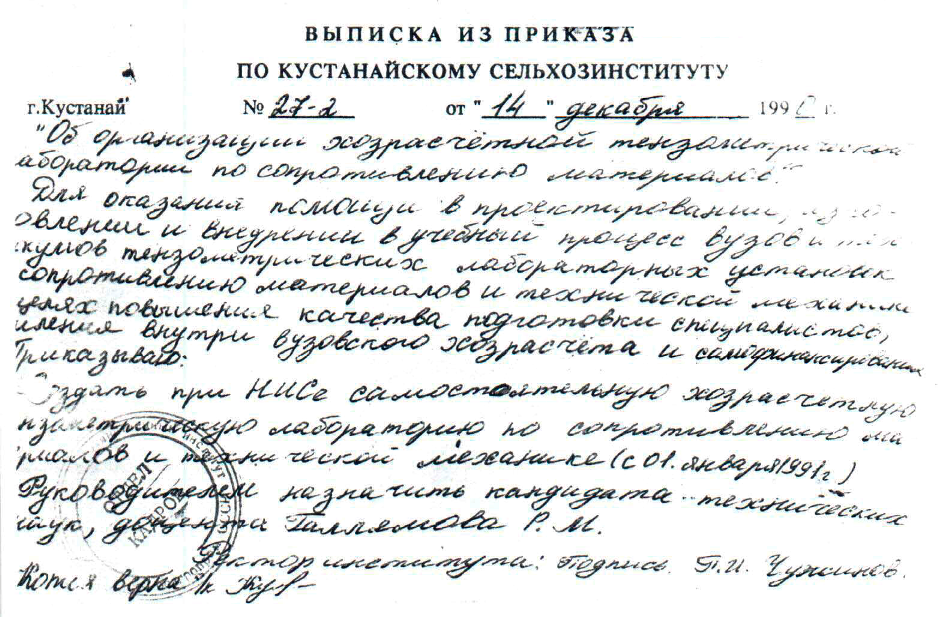 ВЫПИСКА ИЗ ПРИКАЗА
ПО КУСТАНАЙСКОМУ СЕЛЬХОЗИНСТИТУТУ
г.Кустанай № 27-2 от "14" декабря 1990 г.
"Об организации хозрасчётной тензометрической
аборатории по сопротивлению материалов."
Для оказания помощи в проектировании, изго-
овлении и внедрении в учебный процесс вузов и тех
икумов тензометрических лабораторных установок
сопротивлению материалов и технической механике
целях повышения качества подготовки специалистов,
иления внутри вузовского хозрасчёта и самофинансирования
Приказываю:
Создать при НИСе самостоятельную хозрасчетную
нзометрическую лабораторию по сопротивлению ма
риалов и технической механике (с 01. января 1991г)
Руководителем назначить кандидата технических
наук, доцента Галлямова Р. М.
Ректор института: Подпись. П.И. Чужинов.
Копия верна
ОТДЕЛ
КАДРОВ